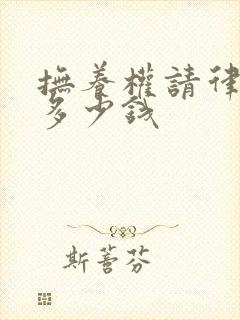 撫養權請律
多少钱
斯蕾芬